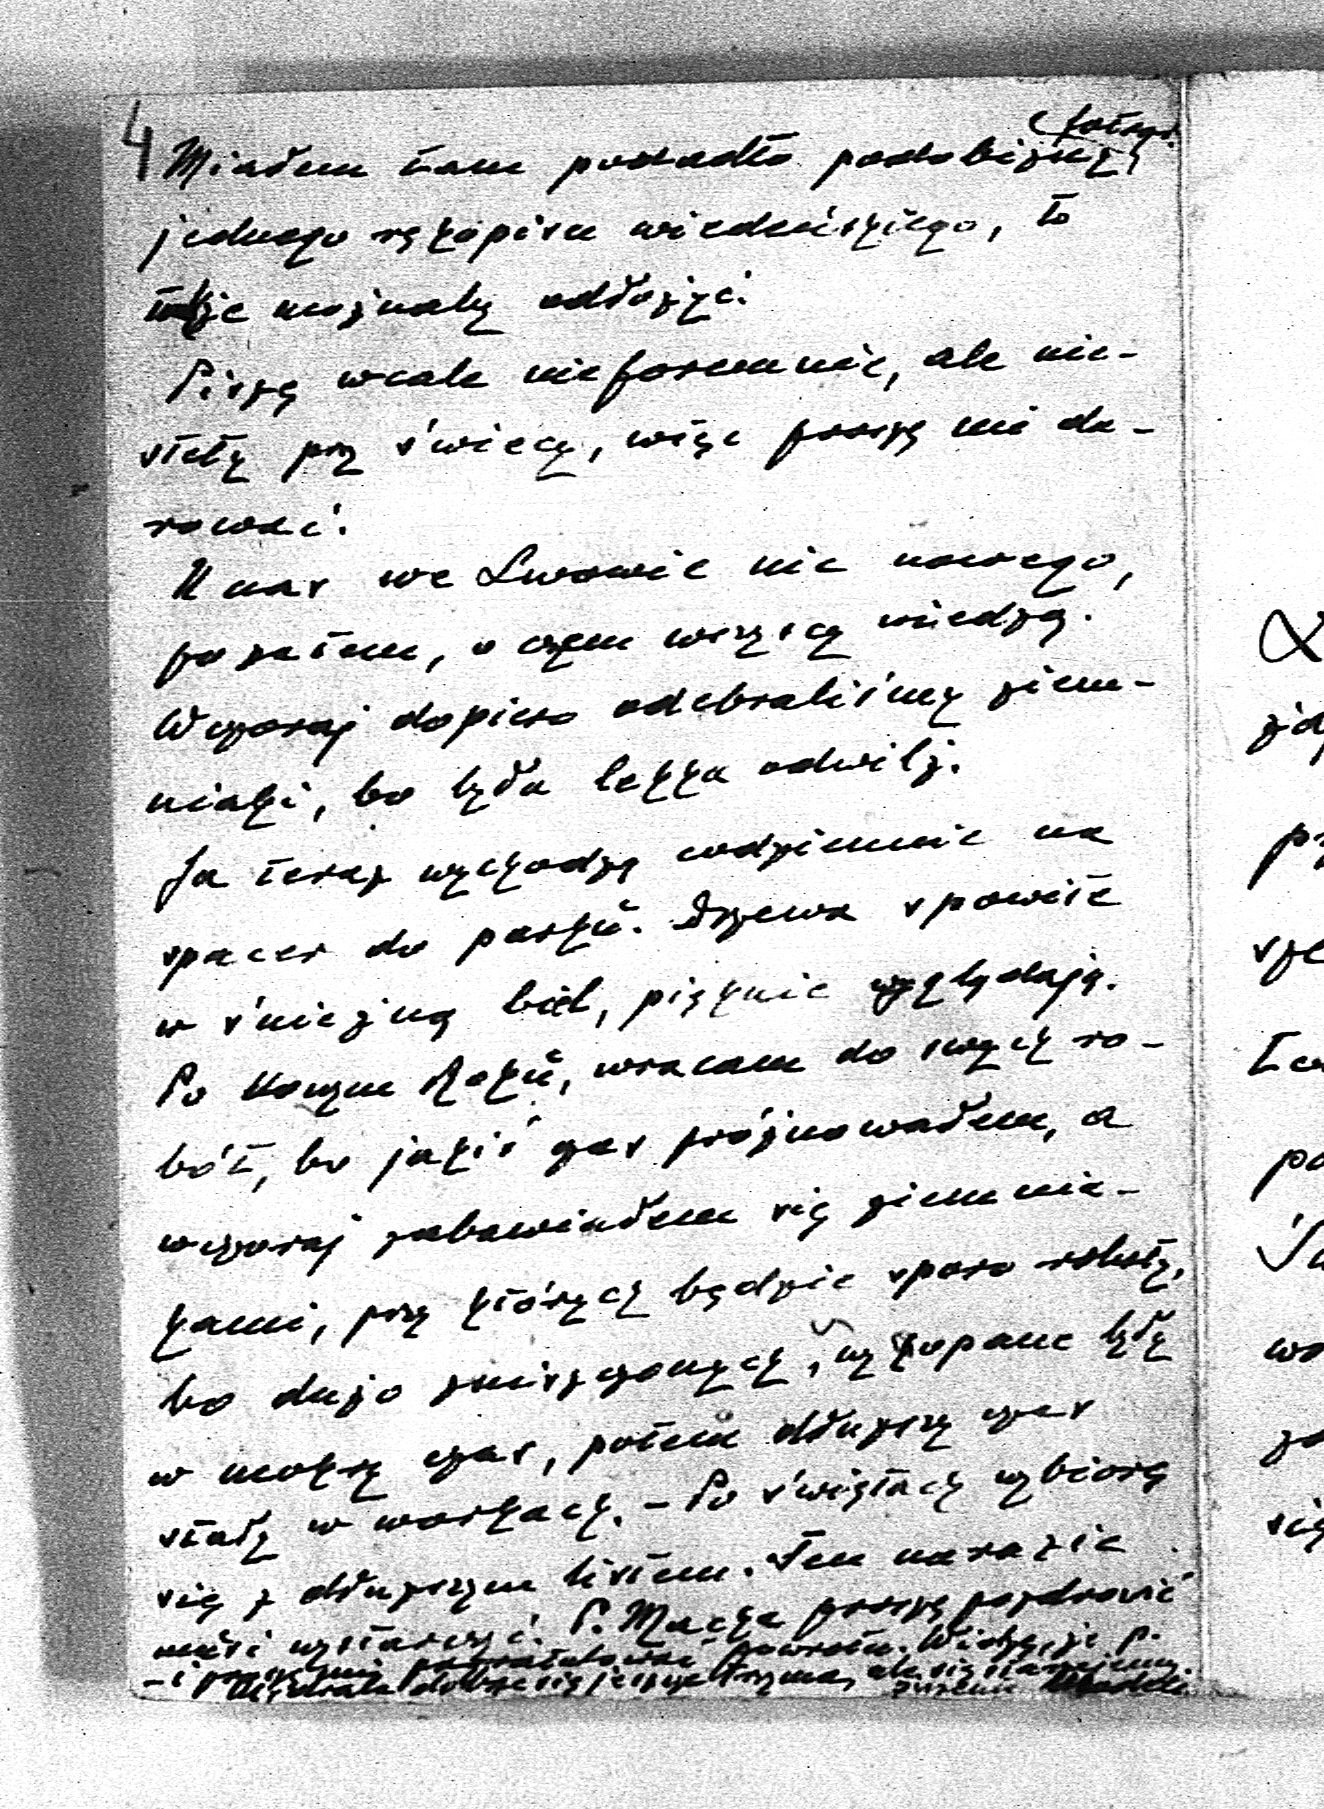 4
(fotogr.
Miałem tam ponadto podobiznę,
jednego rękopisu wiedeńskiego, to
także możnaby odłożyć.
Piszę wcale nieforemnie, ale nie-
stety przy świecy, więc proszę mi da-
rować.
U nas we Lwowie nic nowego,
poza tem, o czem wszyscy wiedzą.
Wczoraj dopiero odebraliśmy ziem-
niaki, bo była lekka odwilż.
Ja teraz wychodzę codziennie na
spacer do parku. Drzewa spowite
w śnieżną biel, pięknie wyglądają.
Po Nowym Roku, wracam do swych ro-
bót, bo jakiś czas próżnowałem, a
wczoraj zabawiałem się ziemnia-
kami, przy których będzie sporo roboty,
bo dużo zniszczonych, wykopane były
w mokry czas, potem dłuższy czas
stały w workach. – Po świętach wybiorę
się z dłuższym listem. Ten na razie
musi wystarczyć. P. Macha proszę pozdrowić
– i pogratulować powrotu. Widzę, że p.
dobrze się jeszcze trzyma, ale się starzejemy.